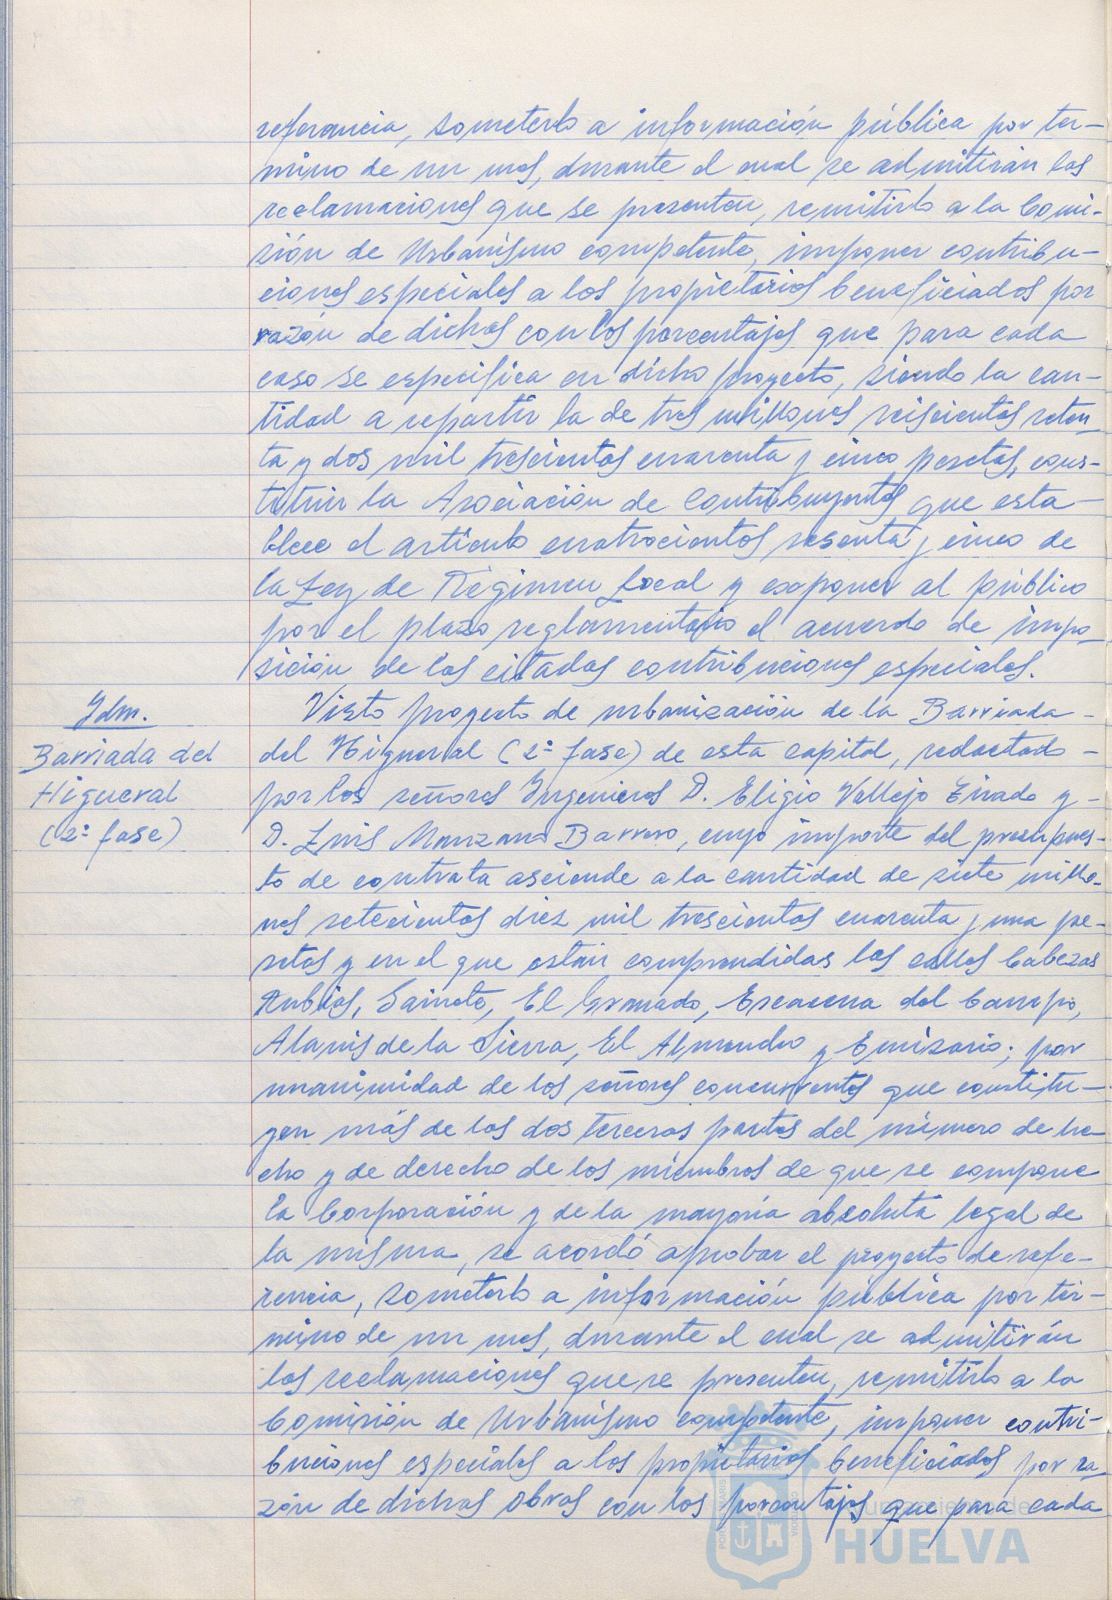 referencia, someterlo a información pública por tér-
mino de un mes, durante el cual se admitirán las
reclamaciones que se presenten, remitirlo a la Comi-
sión de Urbanismo competente, imponer contribu-
ciones especiales a los propietarios beneficiados por
razón de dichas con los porcentajes que para cada
caso se especifica en dicho proyecto, siendo la can-
tidad a repartir la de tres millones seiscientas seten-
ta y dos mil trescientas cuarenta y cinco pesetas, cons-
tituir la Asociación de Contribuyentes que esta-
blece el artículo cuatrocientos sesenta y cinco de
la Ley de Régimen Local y exponer al público
por el plazo reglamentario el acuerdo de impo-
sición de las citadas contribuciones especiales.
Idm.
Barriada del
Higueral
(2ª fase)
Visto proyecto de urbanización de la Barriada
del Higueral (2ª fase) de esta capital, redactado
por los señores Ingenieros D. Eligio Vallejo y
D. Luis Manzano Barrero, cuyo importe del presupues-
to de contrata asciende a la cantidad de siete millo-
nes setecientas diez mil trescientas cuarenta y una pe-
setas y en el que están comprendidas las calles Cabezas
Rubias, El Granado, Escacena del Campo,
Alanis de la Sierra, El Almendro y Emisario; por
unanimidad de los señores concurrentes que constitu-
yen más de las dos terceras partes del número de he-
cho y de derecho de los miembros de que se compone
la Corporación y de la mayoría absoluta legal de
la misma, se acordó aprobar el proyecto de refe-
rencia, someterlo a información pública por tér-
mino de un mes, durante el cual se admitirán
las reclamaciones que se presenten, remitirlo a la
Comisión de Urbanismo competente, imponer contri-
buciones especiales a los propietarios beneficiados por ra-
zón de dichas obras con los porcentajes que para cada
Ayuntamiento de
HUELVA